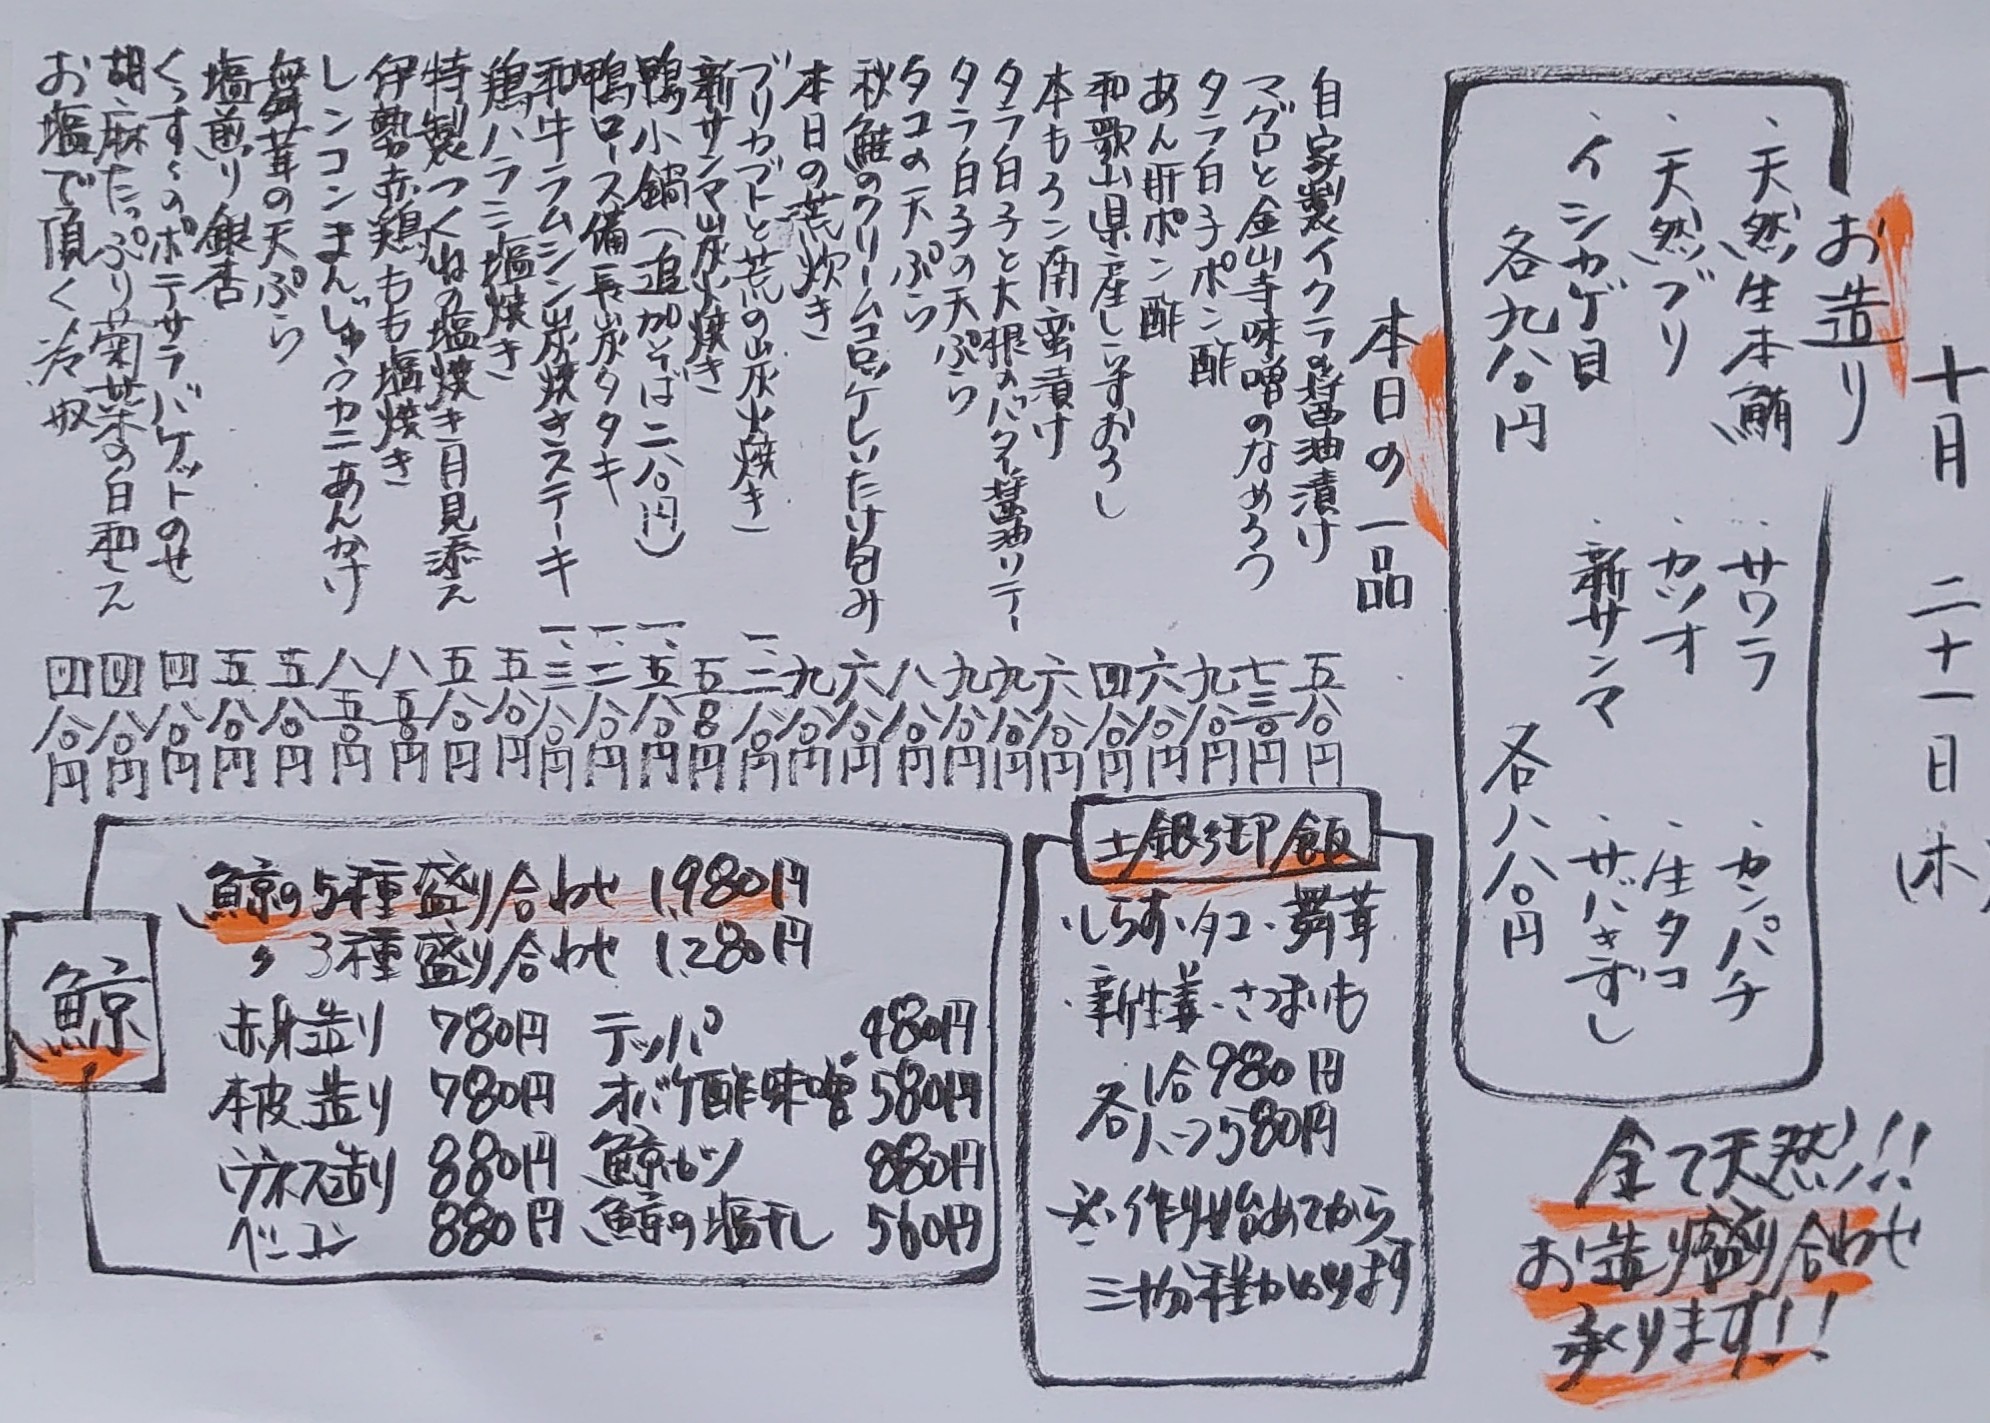 十月二十一日(木)
お造り
・天然生本鮪
・天然ブリ
・イシカゲ貝
各九八〇円
・サワラ
・カツオ
・新サンマ
・カンパチ
・生タコ
・サバきずし
各八八〇円
全て天然!!
お造り盛り合わせ
承ります!!
本日の一品
自家製イクラの醤油漬け 五八〇円
マグロと金山寺味噌のなめろう 七三〇円
タラ白子ポン酢 九八〇円
あん肝ポン酢 六八〇円
和歌山県産しらすおろし 四八〇円
本もろこ南蛮漬け 六八〇円
タラ白子と大根のバター醤油ソテー 九八〇円
タラ白子の天ぷら 九八〇円
タコの天ぷら 八八〇円
秋鮭のクリームコロッケしいたけ包み 六八〇円
本日の荒炊き 九八〇円
ブリカブトと荒の炭火焼き 一、二八〇円
新サンマ炭火焼き 五八〇円
鴨小鍋(追加そば二八〇円) 一、五八〇円
鴨ロース備長炭タタキ 一、二八〇円
和牛ラムシン炭焼きステーキ 一、三八〇円
鶏ハラミ塩焼き 五八〇円
特製つくねの塩焼き月見添え 五八〇円
伊勢赤鶏もも塩焼き 八五〇円
レンコンまんじゅうカニあんかけ 八五〇円
舞茸の天ぷら 五八〇円
塩煎り銀杏 五八〇円
くんすーのポテサラバケットのせ 四八〇円
胡麻たっぷり菊菜の白和え 四八〇円
お塩で頂く冷奴 四八〇円
土鍋御飯
・しらす・タコ・舞茸
・新生姜・さつまいも
各1合980円
各ハーフ580円
※作り始めてから
三十分程かかります
鯨
鯨の5種盛り合わせ 1,980円
〃3種盛り合わせ 1,280円
赤身造り 780円 テッパ 480円
本皮造り 780円 オバケ酢味噌 580円
ウネス造り 880円 鯨カツ 880円
ベーコン 880円 鯨の塩干し 560円